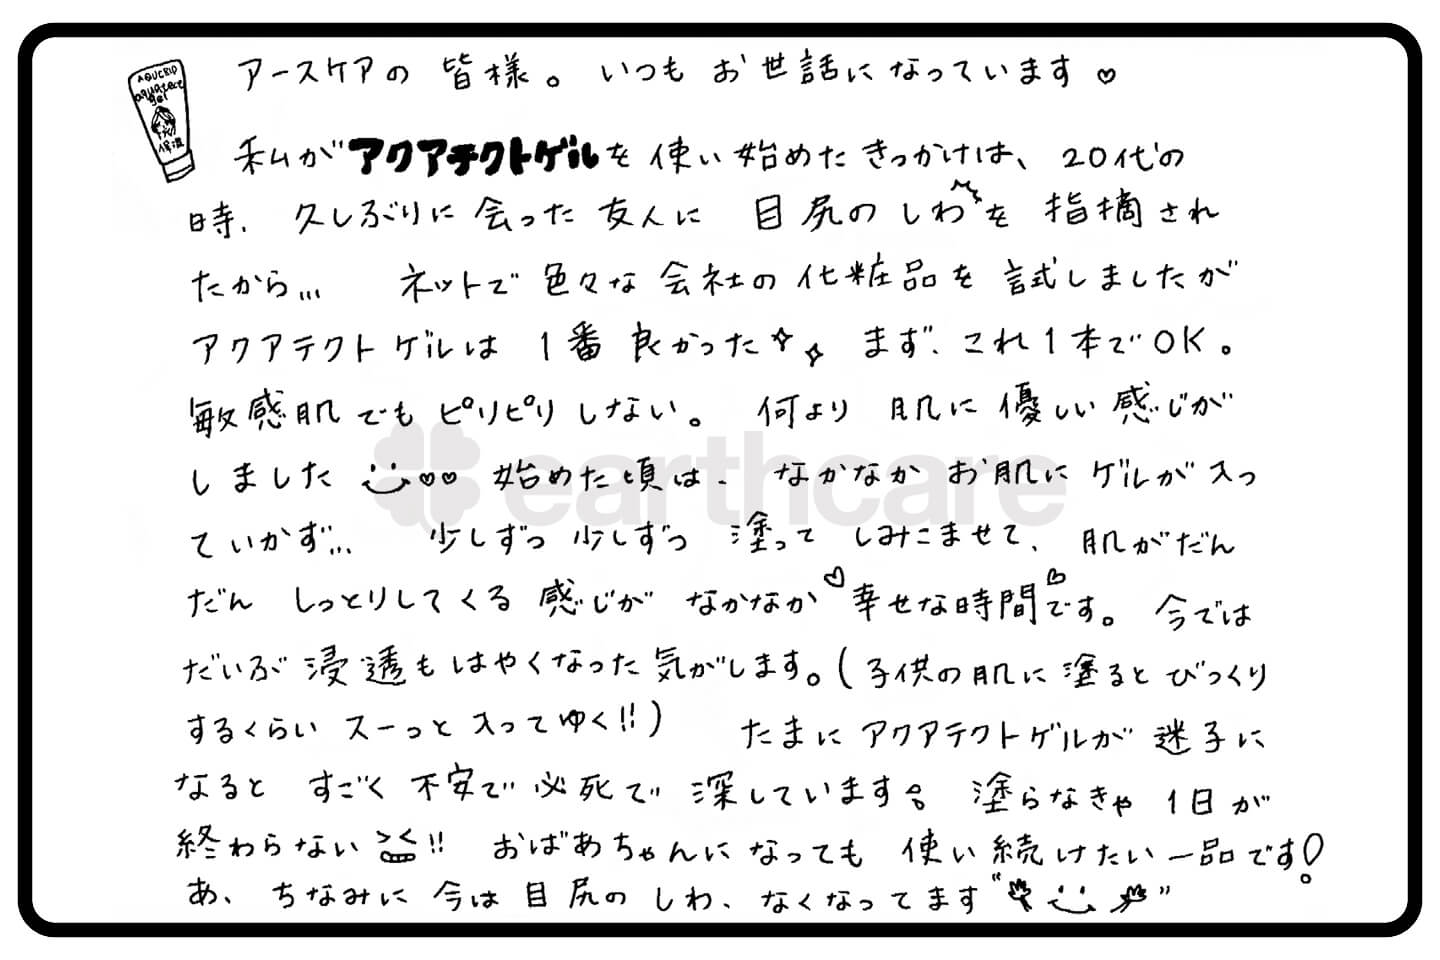 AQUCRID
aquatect
gel
保湿
アースケアの 皆様。いつも お世話になっています♡
私がアクアテクトゲルを使い始めたきっかけは、20代の
時、久しぶりに会った友人に 目尻のしわを 指摘され
たから… ネットで色々な会社の化粧品を試しましたが
アクアテクトゲルは 1番 良かった✧✧ まず、これ1本でOK。
敏感肌でもピリピリしない。何より 肌に優しい感じが
しました ♡♡ 始めた頃は、なかなか お肌に ゲルが入っ
ていかず… 少しずつ 少しずつ 塗って しみこませて、肌がだん
だん しっとりしてくる 感じが なかなか♡幸せな時間♡です。今では
だいぶ 浸透もはやくなった気がします。(子供の肌に塗るとびっくり
するくらい スーっと 入ってゆく!!) たまにアクアテクトゲルが迷子に
なると すごく 不安で必死で 深しています。塗らなきゃ 1日が
終わらない ><!! おばあちゃんになっても 使い続けたい一品です!
あ、ちなみに 今は 目尻の しわ、なくなってます"
earthcare